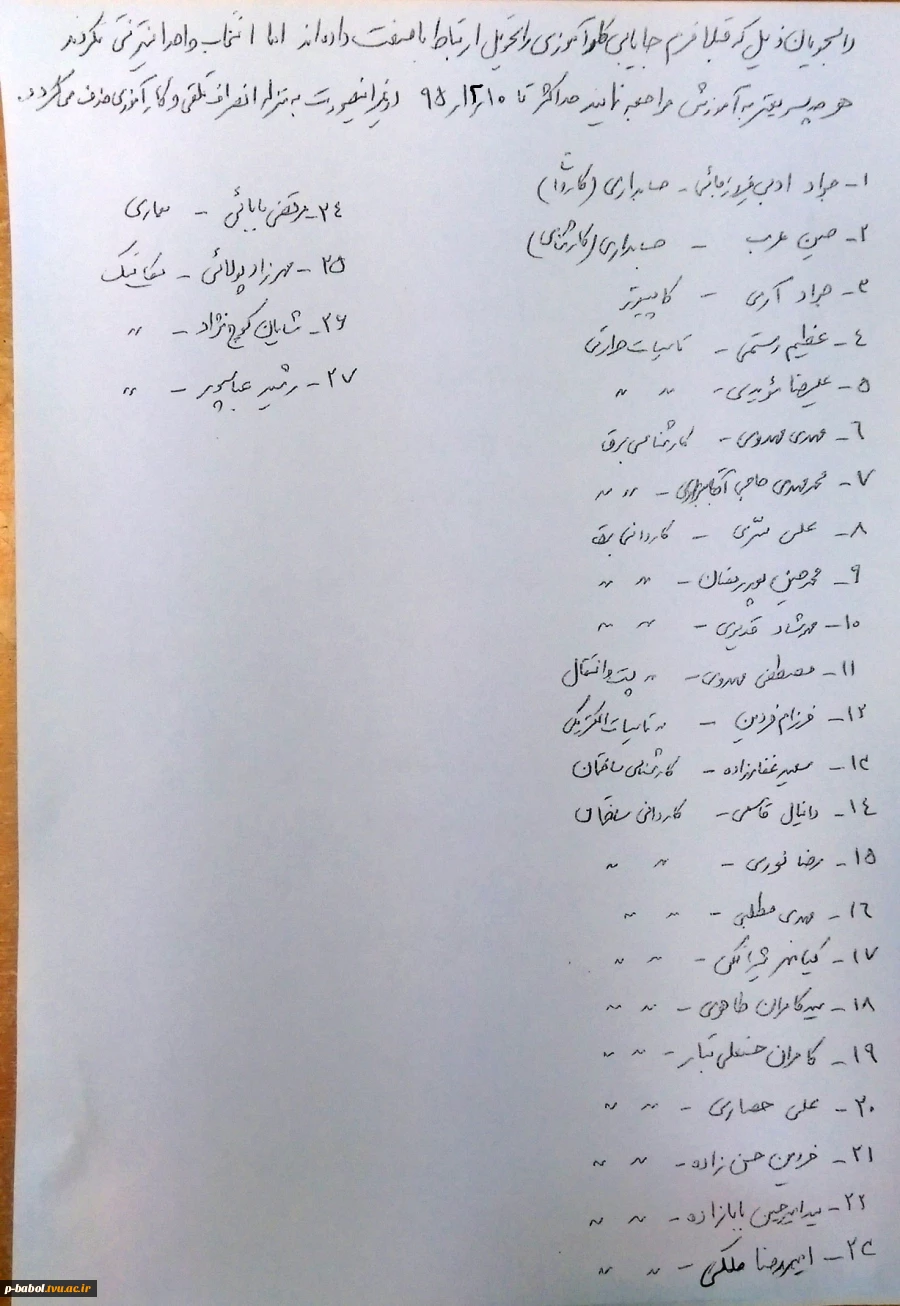 دانشجویان ذیل که قبلا فرم جایابی کارآموزی را تحویل ارتباط با صنعت داده اند اما انتخاب واحد اینترنتی نکردند
هر چه سریعتر به آموزش مراجعه نمایند حداکثر تا ۹۵/۱۲/۱۰ در غیر اینصورت به منزله انصراف تلقی و کارآموزی حذف می گردد.
۱- جواد ادبی - حسابداری (کاردانی)
۲- حسین عرب - حسابداری (کارشناسی)
۳- جواد آرمی - کامپیوتر
٤- عظیم رستمی - تاسیسات حرارتی
۵- علیرضا مؤیدی - " "
٦- مهدی مهدوی - کارشناسی برق
۷- محمدمهدی حاجی - " "
۸- علی - کاردانی برق
۹- محمدحسین پوررمضان - " "
۱۰- مهرشاد قدیری - " "
۱۱- مصطفی مهدوی - " پست و انتقال
۱۲- فرزام فردین - " تاسیسات الکتریکی
۱۳- سعید غفارزاده - کارشناسی ساختمان
۱٤- دانیال قاسمی - کاردانی ساختمان
۱۵- رضا نوری - " "
۱٦- مهدی مطلبی - " "
۱۷- کیانمهر - " "
۱۸- سیدکامران طاهری - " "
۱۹- کامران حسنعلی تبار - " "
۲۰- علی حصاری - " "
۲۱- فردین حسن زاده - " "
۲۲- سیدامیرحسین بابازاده - " "
۲۳- امیررضا ملکی - " "
۲٤- مرتضی بابائی - معماری
۲۵- مهرزاد پولائی - مکانیک
۲۶- شایان کوچ نژاد - "
۲۷- رشید عباسپور - "
p-babol.tvu.ac.ir